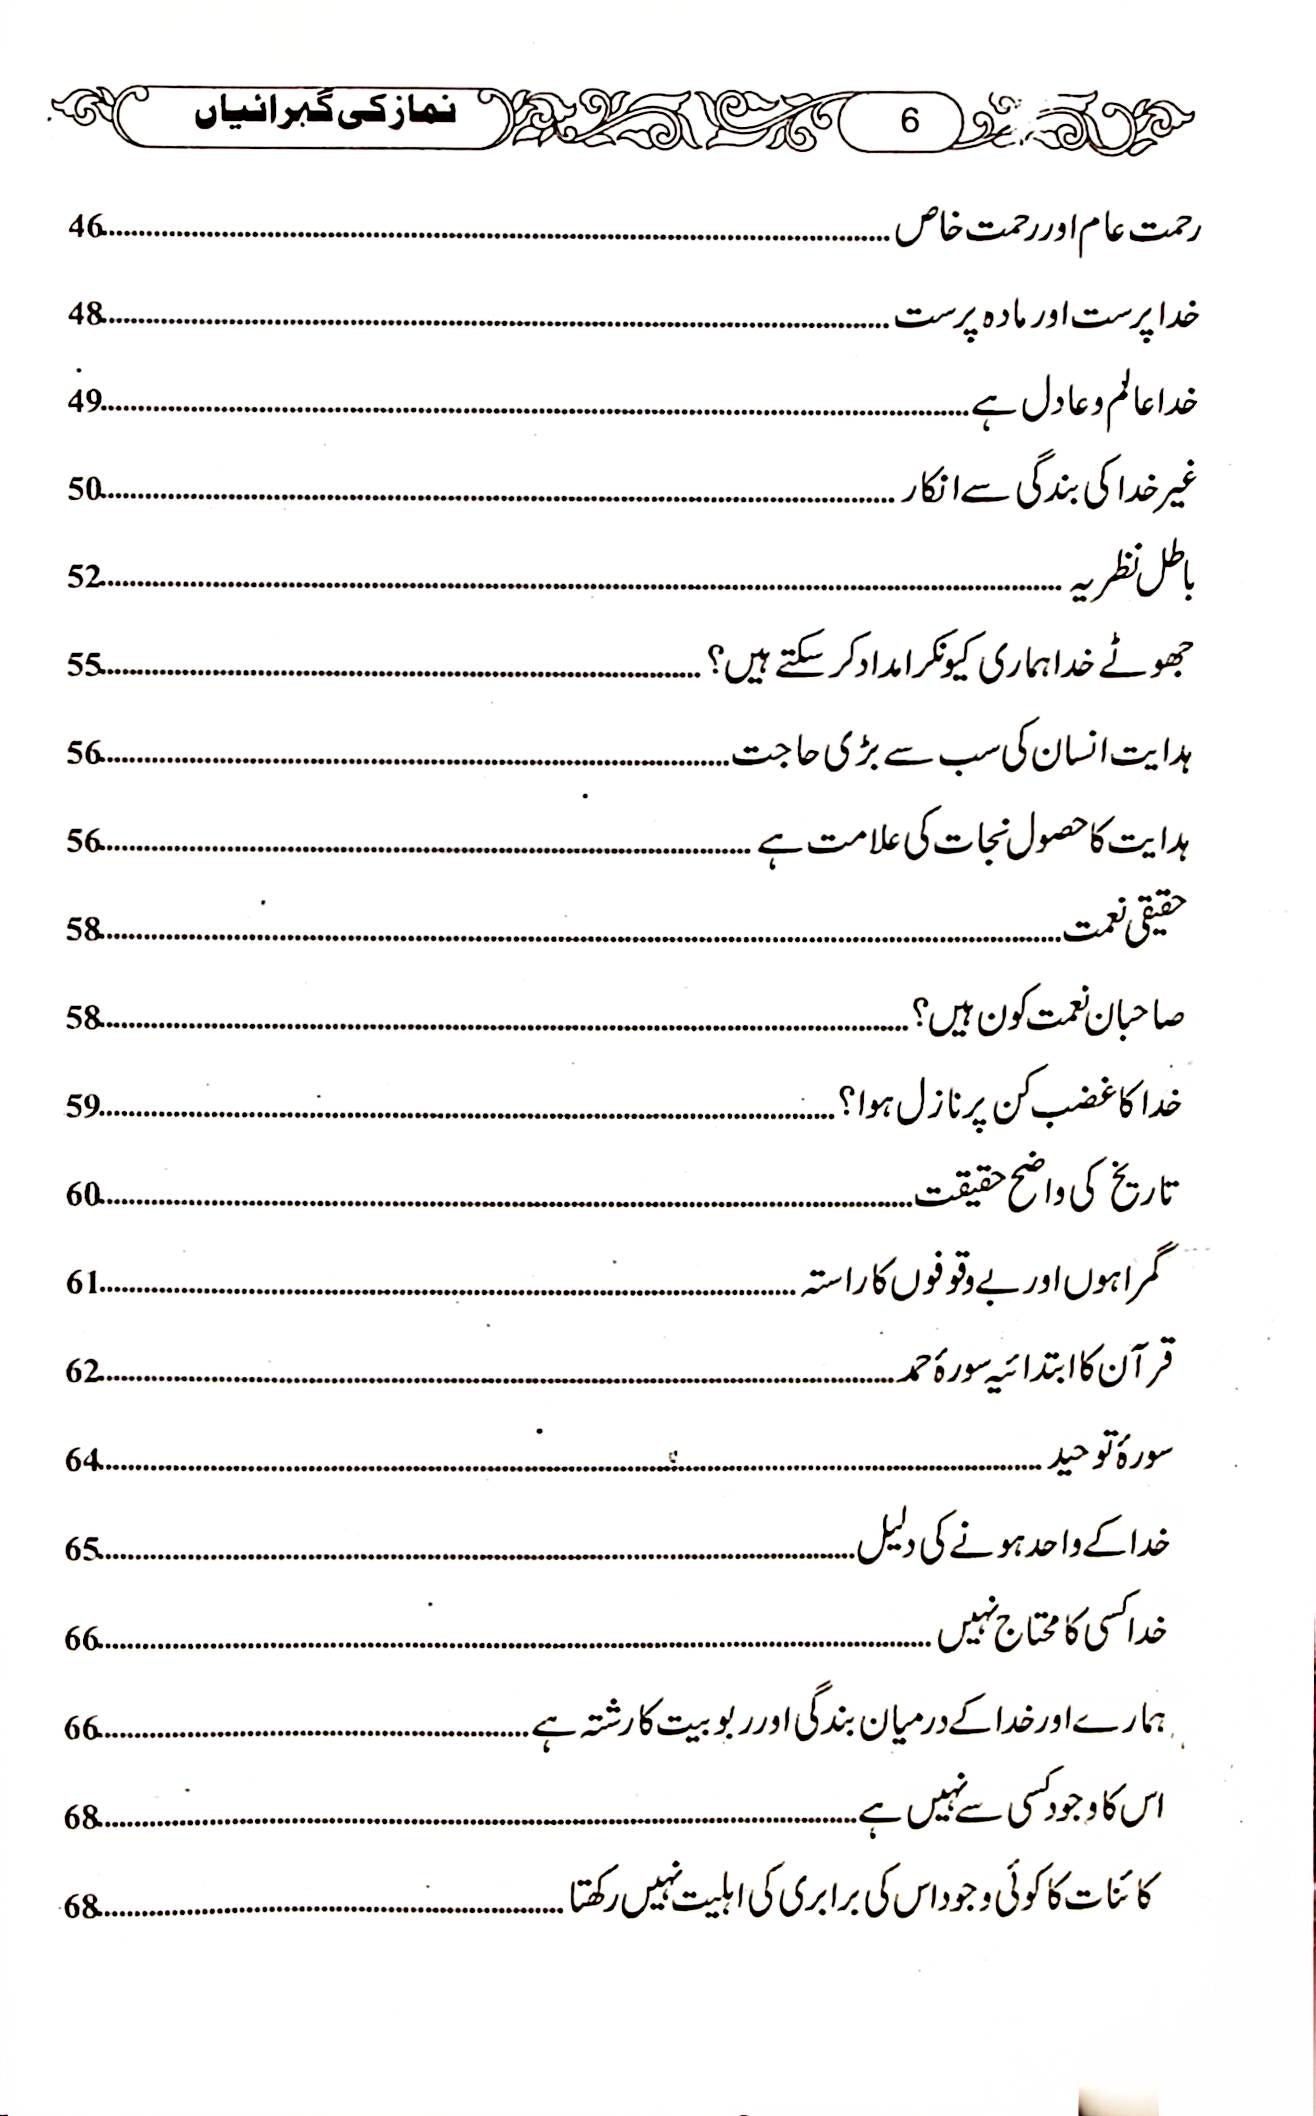 نماز کی گہرائیاں
6
رحمت عام اور رحمت خاص........46
خدا پرست اور مادہ پرست........48
خدا عالم و عادل ہے........49
غیر خدا کی بندگی سے انکار........50
باطل نظریہ........52
جھوٹے خدا ہماری کیونکر امداد کر سکتے ہیں؟........55
ہدایت انسان کی سب سے بڑی حاجت........56
ہدایت کا حصول نجات کی علامت ہے........56
حقیقی نعمت........58
صاحبان نعمت کون ہیں؟........58
خدا کا غضب کن پر نازل ہوا؟........59
تاریخ کی واضح حقیقت........60
گمراہوں اور بے وقوفوں کا راستہ........61
قرآن کا ابتدائیہ سورۂ حمد........62
سورۂ توحید........64
خدا کے واحد ہونے کی دلیل........65
خدا کسی کا محتاج نہیں........66
ہمارے اور خدا کے درمیان بندگی اور ربوبیت کا رشتہ ہے........66
اس کا وجود کسی سے نہیں ہے........68
کائنات کا کوئی وجود اس کی برابری کی اہلیت نہیں رکھتا........68